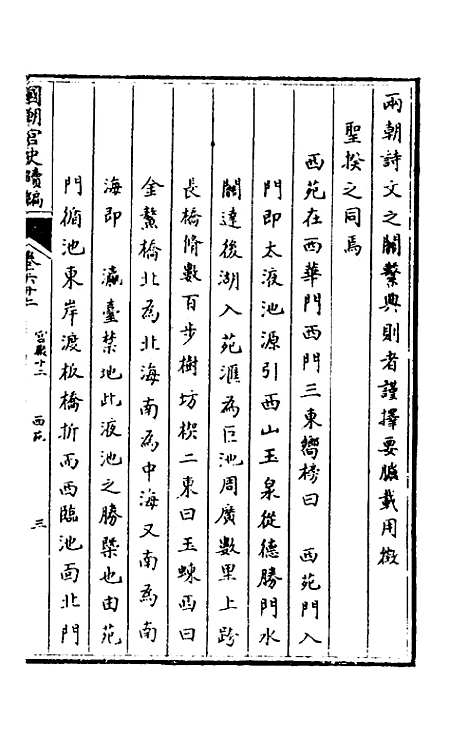 兩朝詩文之關繫典則者謹擇要臚載用徵
聖揆之同焉
西苑在西華門西門三東嚮榜曰 西苑門入
門即太液池源引西山玉泉從德勝門水
關達後湖入苑滙為巨池周廣數里上跨
長橋脩數百步樹坊楔二東曰玉蝀西曰
金鰲橋北為北海南為中海又南為南
海即 瀛臺禁地此液池之勝槩也由苑
門循池東岸渡板橋折而西臨池面北門
國朝宮史續編
卷六十二
宮殿十二
西苑
三